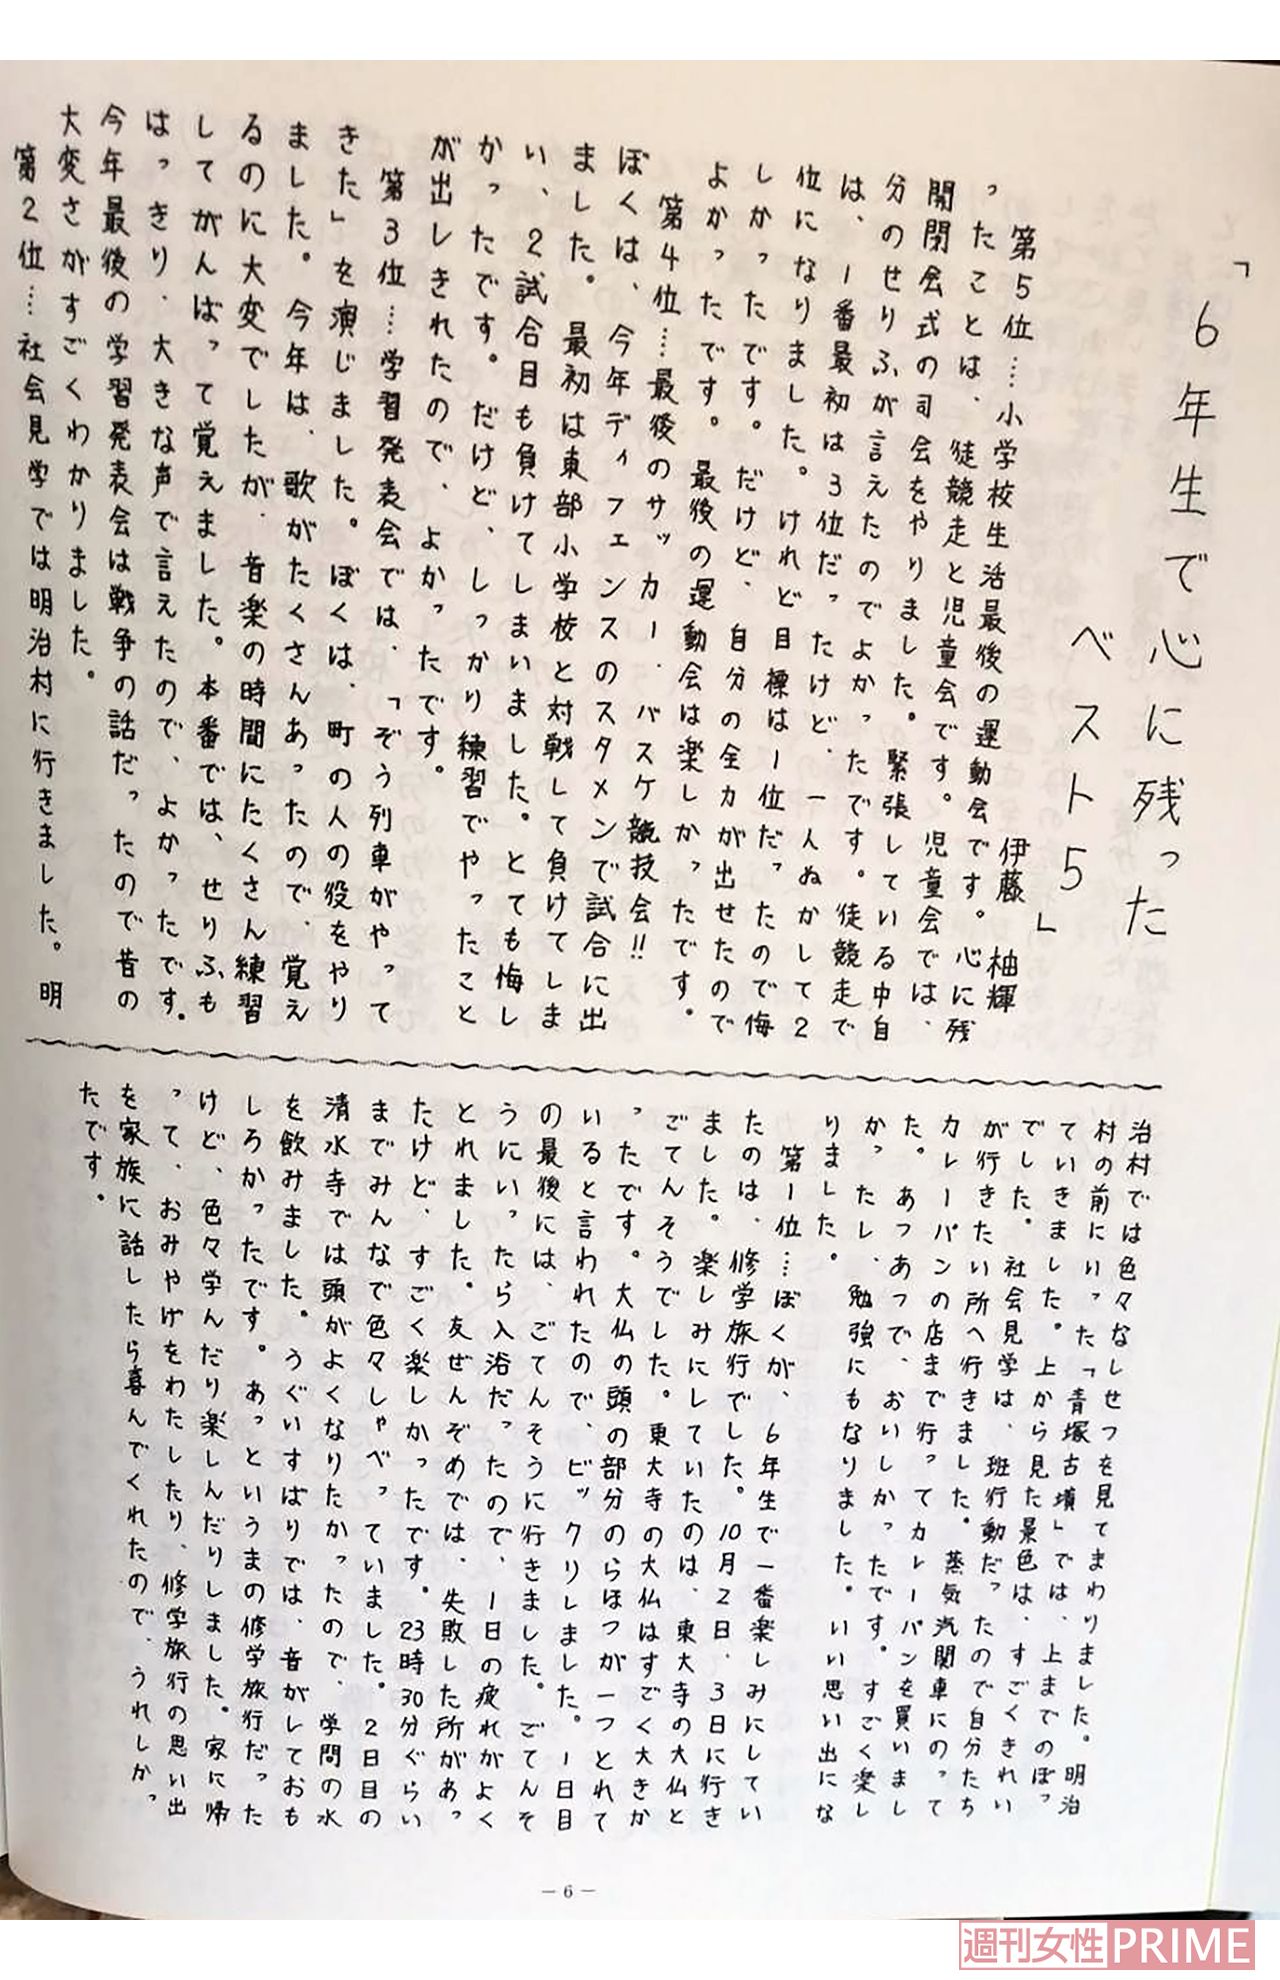 「６年生で心に残った
ベスト５」
伊藤　柚輝
第５位…小学校生活最後の運動会です。心に残
ったことは、徒競走と児童会です。児童会では、
開閉会式の司会をやりました。緊張している中自
分のせりふが言えたのでよかったです。徒競走で
は、１番最初は３位だったけど、一人ぬかして２
位になりました。けれど目標は１位だったので悔
しかったです。だけど、自分の全力が出せたので
よかったです。最後の運動会は楽しかったです。
第４位…最後のサッカー、バスケ競技会!!
ぼくは、今年ディフェンスのスタメンで試合に出
ました。最初は東部小学校と対戦して負けてしま
い、２試合目も負けてしまいました。とても悔し
かったです。だけど、しっかり練習でやったこと
が出しきれたので、よかったです。
第３位…学習発表会では、「ぞう列車がやって
きた」を演じました。ぼくは、町の人の役をやり
ました。今年は、歌がたくさんあったので、覚え
るのに大変でしたが、音楽の時間にたくさん練習
してがんばって覚えました。本番では、せりふも
はっきり、大きな声で言えたので、よかったです。
今年最後の学習発表会は戦争の話だったので昔の
大変さがすごくわかりました。
第２位…社会見学では明治村に行きました。明
治村では色々なしせつを見てまわりました。明治
村の前にいった「青塚古墳」では、上までのぼっ
ていきました。上から見た景色は、すごくきれい
でした。社会見学は、班行動だったので自分たち
が行きたい所へ行きました。蒸気汽関車にのって
カレーパンの店まで行ってカレーパンを買いまし
た。あつあつで、おいしかったです。すごく楽し
かったし、勉強にもなりました。いい思い出にな
りました。
第１位…ぼくが、６年生で一番楽しみにしてい
たのは、修学旅行でした。10月２日、３日に行き
ました。楽しみにしていたのは、東大寺の大仏と
ごてんそうでした。東大寺の大仏はすごく大きか
ったです。大仏の頭の部分のらほつが一つとれて
いると言われたので、ビックリしました。１日目
の最後には、ごてんそうに行きました。ごてんそ
うにいったら入浴だったので、１日の疲れがよく
とれました。友ぜんぞめでは、失敗した所があっ
たけど、すごく楽しかったです。23時30分ぐらい
までみんなで色々しゃべっていました。２日目の
清水寺では頭がよくなりたかったので、学問の水
を飲みました。うぐいすばりでは、音がしておも
しろかったです。あっというまの修学旅行だった
けど、色々学んだり楽しんだりしました。家に帰
って、おみやげをわたしたり、修学旅行の思い出
を家族に話したら喜んでくれたので、うれしかっ
たです。
－６－
週刊女性PRIME